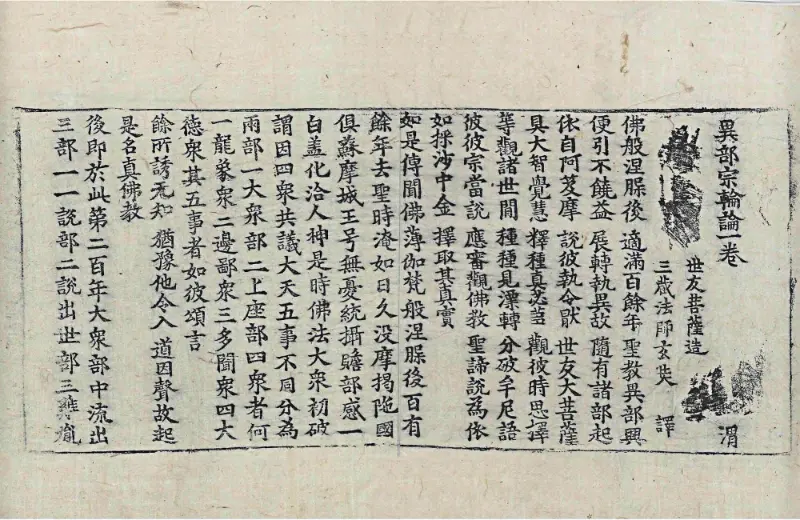 異部宗輪論一卷 渭
世友菩薩造
三蔵法師玄奘 譯
佛般涅槃後 適滿百餘年 聖教異部興
便引不饒益 展轉執異故 隨有諸部起
依自阿笈摩 說彼執令厭 世友大菩薩
具大智覺慧 釋種真苾芻 觀彼時思擇
等觀諸世間 種種見漂轉 分破牟尼語
彼彼宗當說 應審觀佛教 聖諦說為依
如採沙中金 擇取其真實
如是傳聞佛薄伽梵般涅槃後百有
餘年去聖時淹如日久没摩揭陁國
俱蘇摩城王号無憂統攝贍部感一
白盖化洽人神是時佛法大衆初破
謂因四衆共議大天五事不同分為
兩部一大衆部二上座部四衆者何
一龍象衆二邊鄙衆三多聞衆四大
德衆其五事者如彼頌言
餘所誘无知 猶豫他令入 道因聲故起
是名真佛教
後即於此第二百年大衆部中流出
三部一一說部二說出世部三雞胤